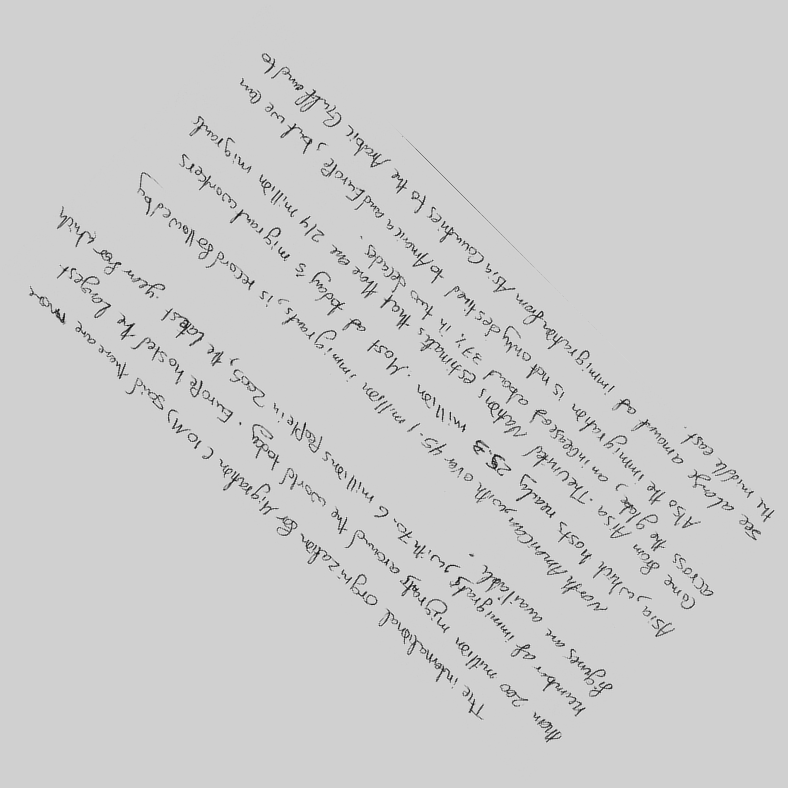 The international orginization for Migration (IOM) said there are more
than 200 million migrants around the world today. Europe hosted the largest
number of immigrants, with 70.6 millions People in 2005, the latest year for which
figures are available.
North American, with over 45.1 million immigrants, is record followed by
Asia, which hosts nearly 25.3 million. Most of today's migrant workers
come from Aisa. The united Nations estimates that there are 214 million migrants
across the globe, an increased about 37% in two decades.
Also the immigration is not only destined to America and Europe, but we can
see a large amount of immigration from Asia Countries to the Arabic Gulf and to
the middle east.